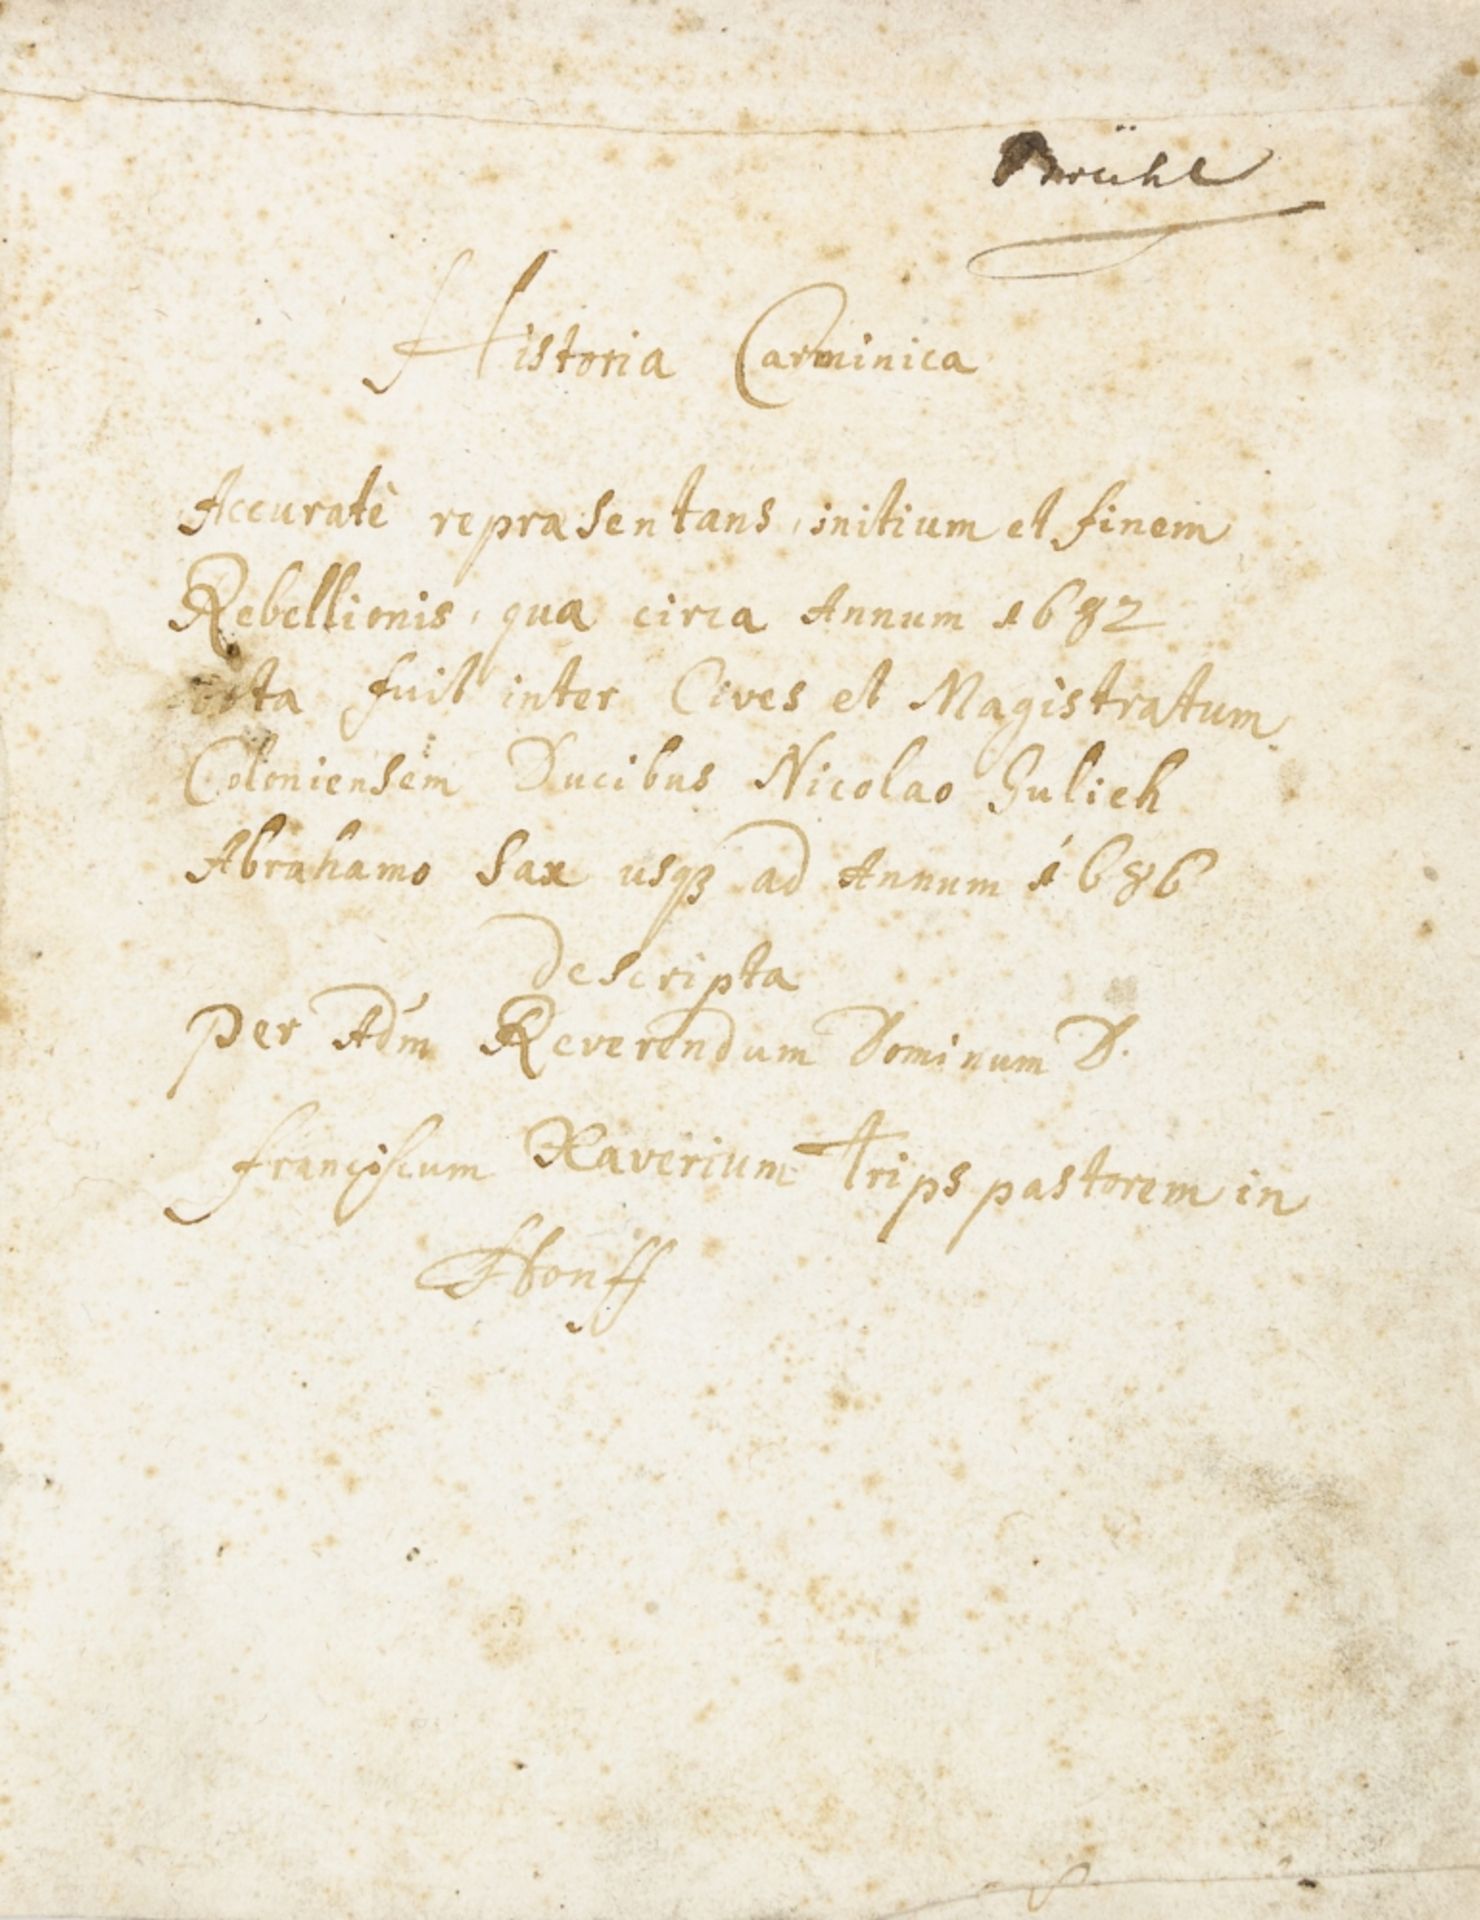 Brühl
Historia Carminica
Accuratè repræsentans initium et finem
Rebellionis, quæ circa Annum 1682
orta fuit inter Cives et Magistratum
Coloniensem Ducibus Nicolao Gulich
Abrahamo Sax usqȝ ad Annum 1686
descripta
per Adm̃ Reverendum Dominum D.
Franciscum Xaverium Trips pastorem in
Honff